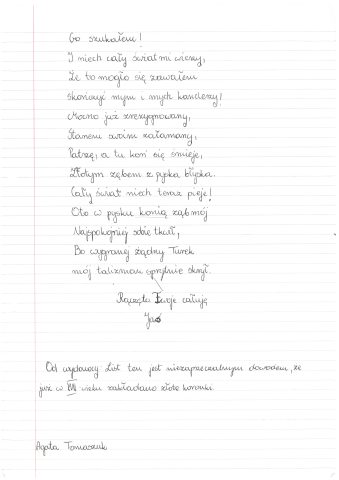 Go szukałem!
I niech cały świat mi wierzy,
Że to mogło się zawałem
skończyć mym i mych kanclerzy!
Mocno już zrezygnowany,
Stanem swoim załamany,
Patrzę, a tu koń się śmieje,
Złotym zębem z pyska błyska.
Cały świat niech teraz pieje!
Oto w pysku konia ząb mój
Najspokojniej sobie tkwił,
Bo wygranej żądny Turek
mój talizman sprytnie skrył.
Rączęta Twoje całuję
Jaś
Od wydawcy: List ten jest niezaprzeczalnym dowodem, że
już w XVII wieku zakładano złote koronki.
Agata Tomaszuk